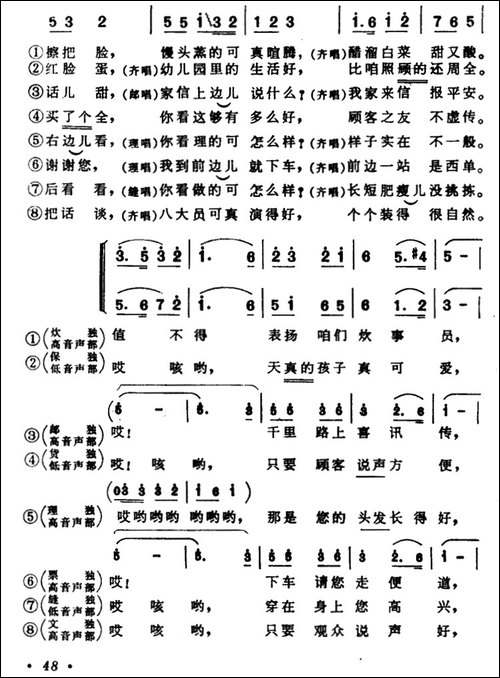 5 3 2 | 5 5 i 3 2 | 1 2 3 | i. 6 i 2 | 7 6 5
①擦把脸， 馒头蒸的可真喧腾，(齐唱)醋溜白菜 甜又酸。
②红脸蛋，(齐唱)幼儿园里的生活好， 比咱照顾的还周全。
③话儿甜，(邮唱)家信上边儿说什么？(齐唱)我家来信 报平安。
④买了个全， 你看这够有多么好， 顾客之友 不虚传。
⑤右边儿看，(理唱)你看理的可怎么样？(齐唱)样子实在 不一般。
⑥谢谢您，(理唱)我到前边儿就下车，(齐唱)前边一站 是西单。
⑦后看看，(缝唱)你看做的可怎么样？(齐唱)长短肥瘦儿没挑拣。
⑧把话谈，(齐唱)八大员可真演得好， 个个装得 很自然。
3. 5 3 2 | i. 6 | 2 3 2 i | 6 5. #4 | 5 - |
5. 6 7 2 | i. 6 | 5 i 6 5 | 6 1. 2 | 3 - |
①(炊独 高音声部) 值不得 表扬咱们炊事员，
②(保独 低音声部) 哎咳哟， 天真的孩子真可爱，
(6 - | 6. 3) | 5 6 3 6 | 3 2. 6 | i - |
③(邮独 高音声部) 哎！ 千里路上喜讯传，
④(货独 高音声部) 哎！咳哟， 只要顾客说声方便，
(03 3 3 2 | i 6 i)
⑤(理独 高音声部) 哎哟哟哟 哟哟哟， 那是您的头发长得好，
6 - | 6. 3 | 5 6 3 6 | 3 2. 6 | i - |
⑥(票独 高音声部) 哎！ 下车请您走便道，
⑦(缝独 低音声部) 哎咳哟， 穿在身上您高兴，
⑧(文独 高音声部) 哎咳哟， 只要观众说声好，
· 48 ·